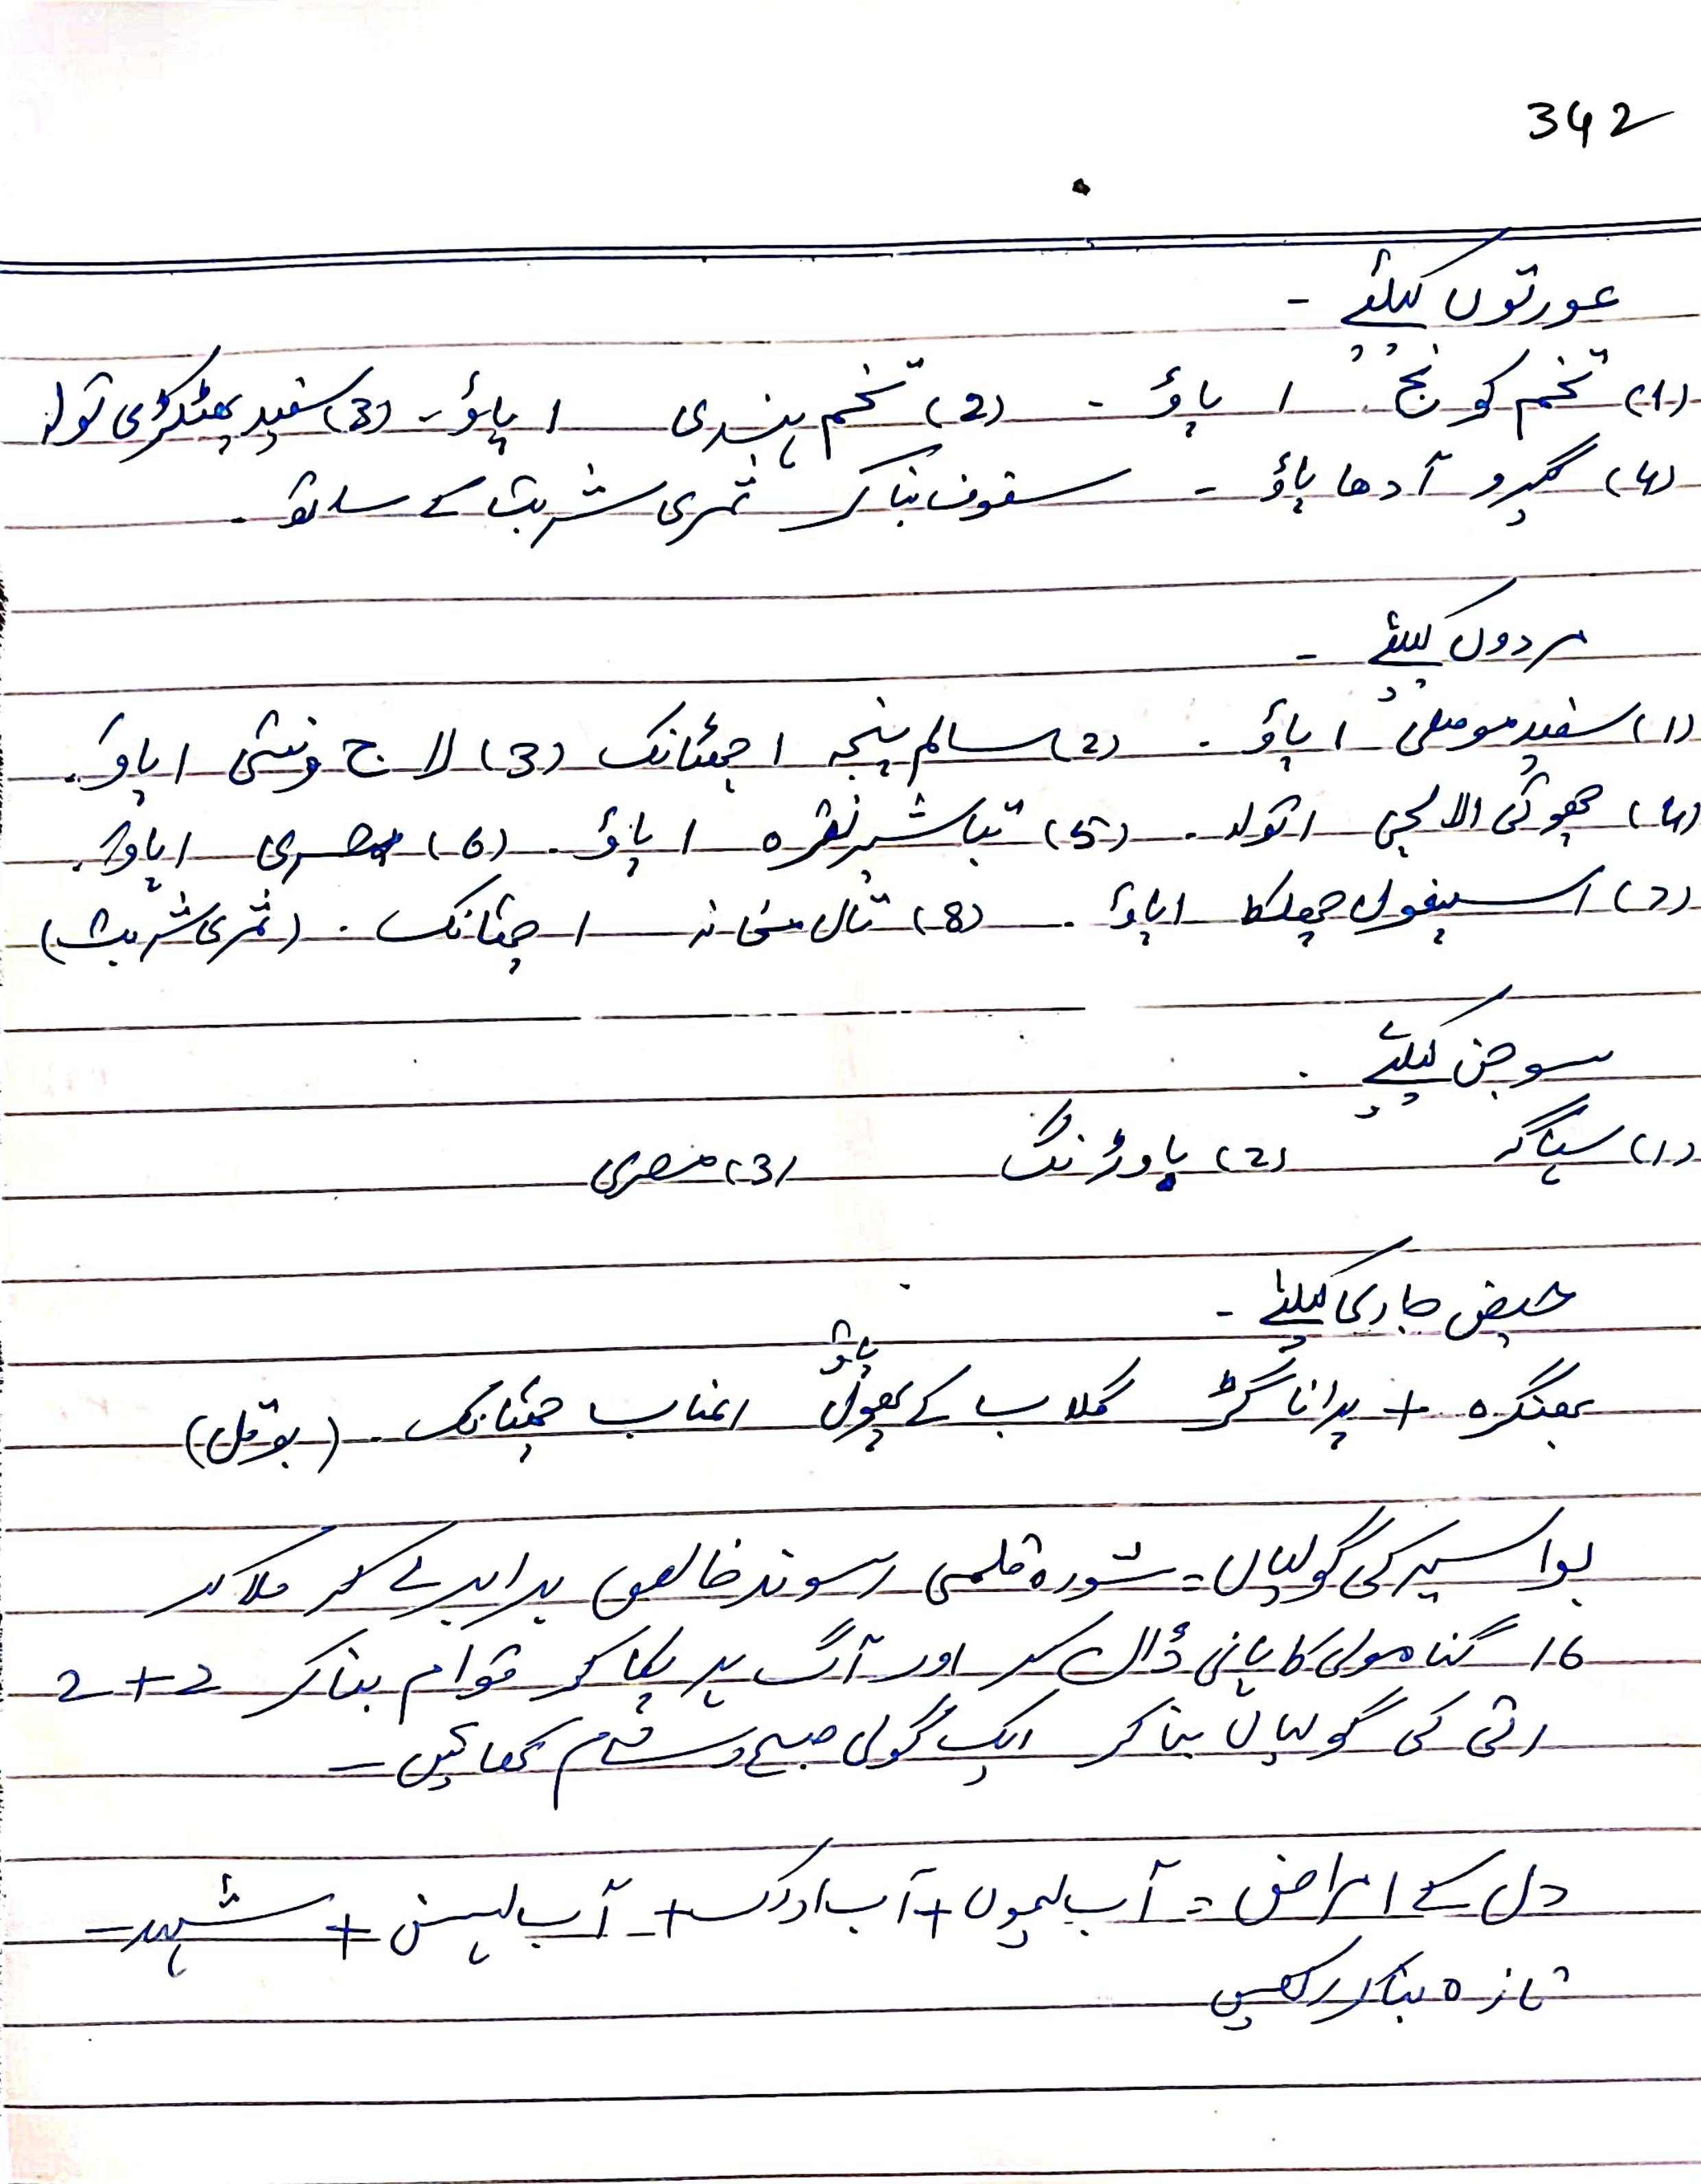 342
عورتوں کیلئے -
(1) تخم کونچ 1 پاؤ - (2) تخم ہندی 1 پاؤ - (3) سفید پھٹکڑی تولہ
(4) گیرو آدھا پاؤ - سفوف بنا کر ثمری شربت کے ساتھ -
مردوں کیلئے -
(1) سفید موصلی 1 پاؤ - (2) سالم پنجہ 1 چھٹانک (3) لاج ونتی 1 پاؤ -
(4) چھوٹی الائچی 1 تولہ - (5) تباشیر نقرہ 1 پاؤ - (6) مصری 1 پاؤ -
(7) اسپغول چھلکا 1 پاؤ - (8) تال مخانہ 1 چھٹانک - (ثمری شربت)
سوجن کیلئے -
(1) سہاگہ (2) باوڑنگ (3) مصری
حیض جاری کیلئے -
بھنگرہ + پرانا گڑ گلاب کے پھول پاؤ اعناب چھٹانک - (بوتل)
بواسیر کی گولیاں = شورہ قلمی رسوند خالص برابر لے کر ملا کر
16 گنا مولی کا پانی ڈال کر اور آگ پر پکا کر قوام بنا کر 2+2
رتی کی گولیاں بنا کر ایک گولی صبح و شام کھائیں -
دل کے امراض = آب لیموں + آب ادرک + آب لہسن + شہد -
تازہ بنا کر رکھیں